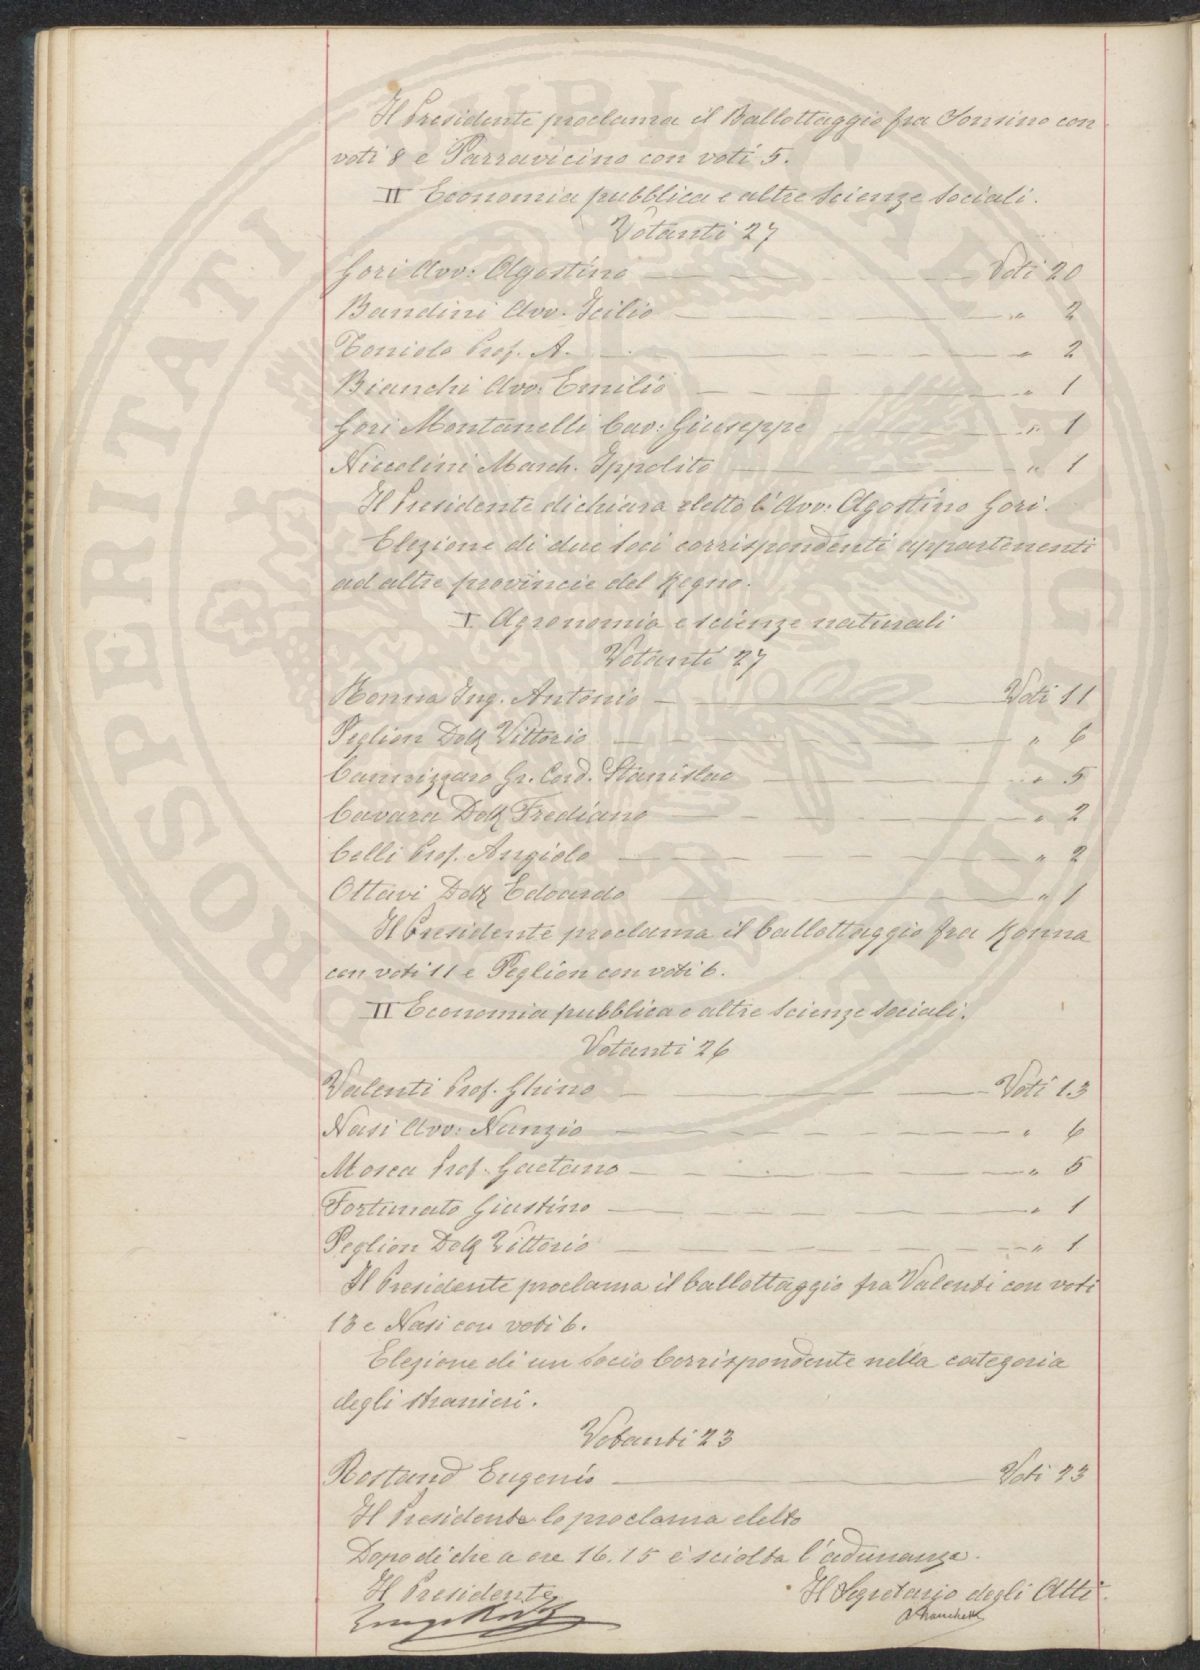 Il Presidente proclama il Ballottaggio fra Sonsino con
voti 8 e Parravicino con voti 5.
II Economia pubblica e altre Scienze Sociali.
Votanti 27
Gori Avv: Agostino — Voti 20
Bandini Avv. Icilio — " 2
Toniolo Prof. A. — " 2
Bianchi Avv: Emilio — " 1
Gori Montanelli Cav: Giuseppe — " 1
Niccolini March. Ippolito — " 1
Il Presidente dichiara eletto l'Avv: Agostino Gori.
Elezione di due Soci corrispondenti appartenenti
ad altre provincie del Regno.
I Agronomia e scienze naturali
Votanti 27
Ronna Ing. Antonio — Voti 11
Peglion Dott Vittorio — " 6
Cannizzaro Gr. Cord. Stanislao — " 5
Cavara Dott Frediano — " 2
Celli Prof. Angiolo — " 2
Ottavi Dott Edoardo — " 1
Il Presidente proclama il ballottaggio fra Ronna
con voti 11 e Peglion con voti 6.
II Economia pubblica e altre Scienze Sociali.
Votanti 26
Valenti Prof. Ghino — Voti 13
Nasi Avv: Nunzio — " 6
Mosca Prof. Gaetano — " 5
Fortunato Giustino — " 1
Peglion Dott Vittorio — " 1
Il Presidente proclama il ballottaggio fra Valenti con voti
13 e Nasi con voti 6.
Elezione di un Socio Corrispondente nella categoria
degli stranieri.
Votanti 23
Rostand Eugenio — Voti 23
Il Presidente lo proclama eletto
Dopo di che a ore 16.15 è sciolta l'adunanza.
Il Presidente
Il Segretario degli Atti.
PROSPERITATI PUBLICAE AUGENDAE